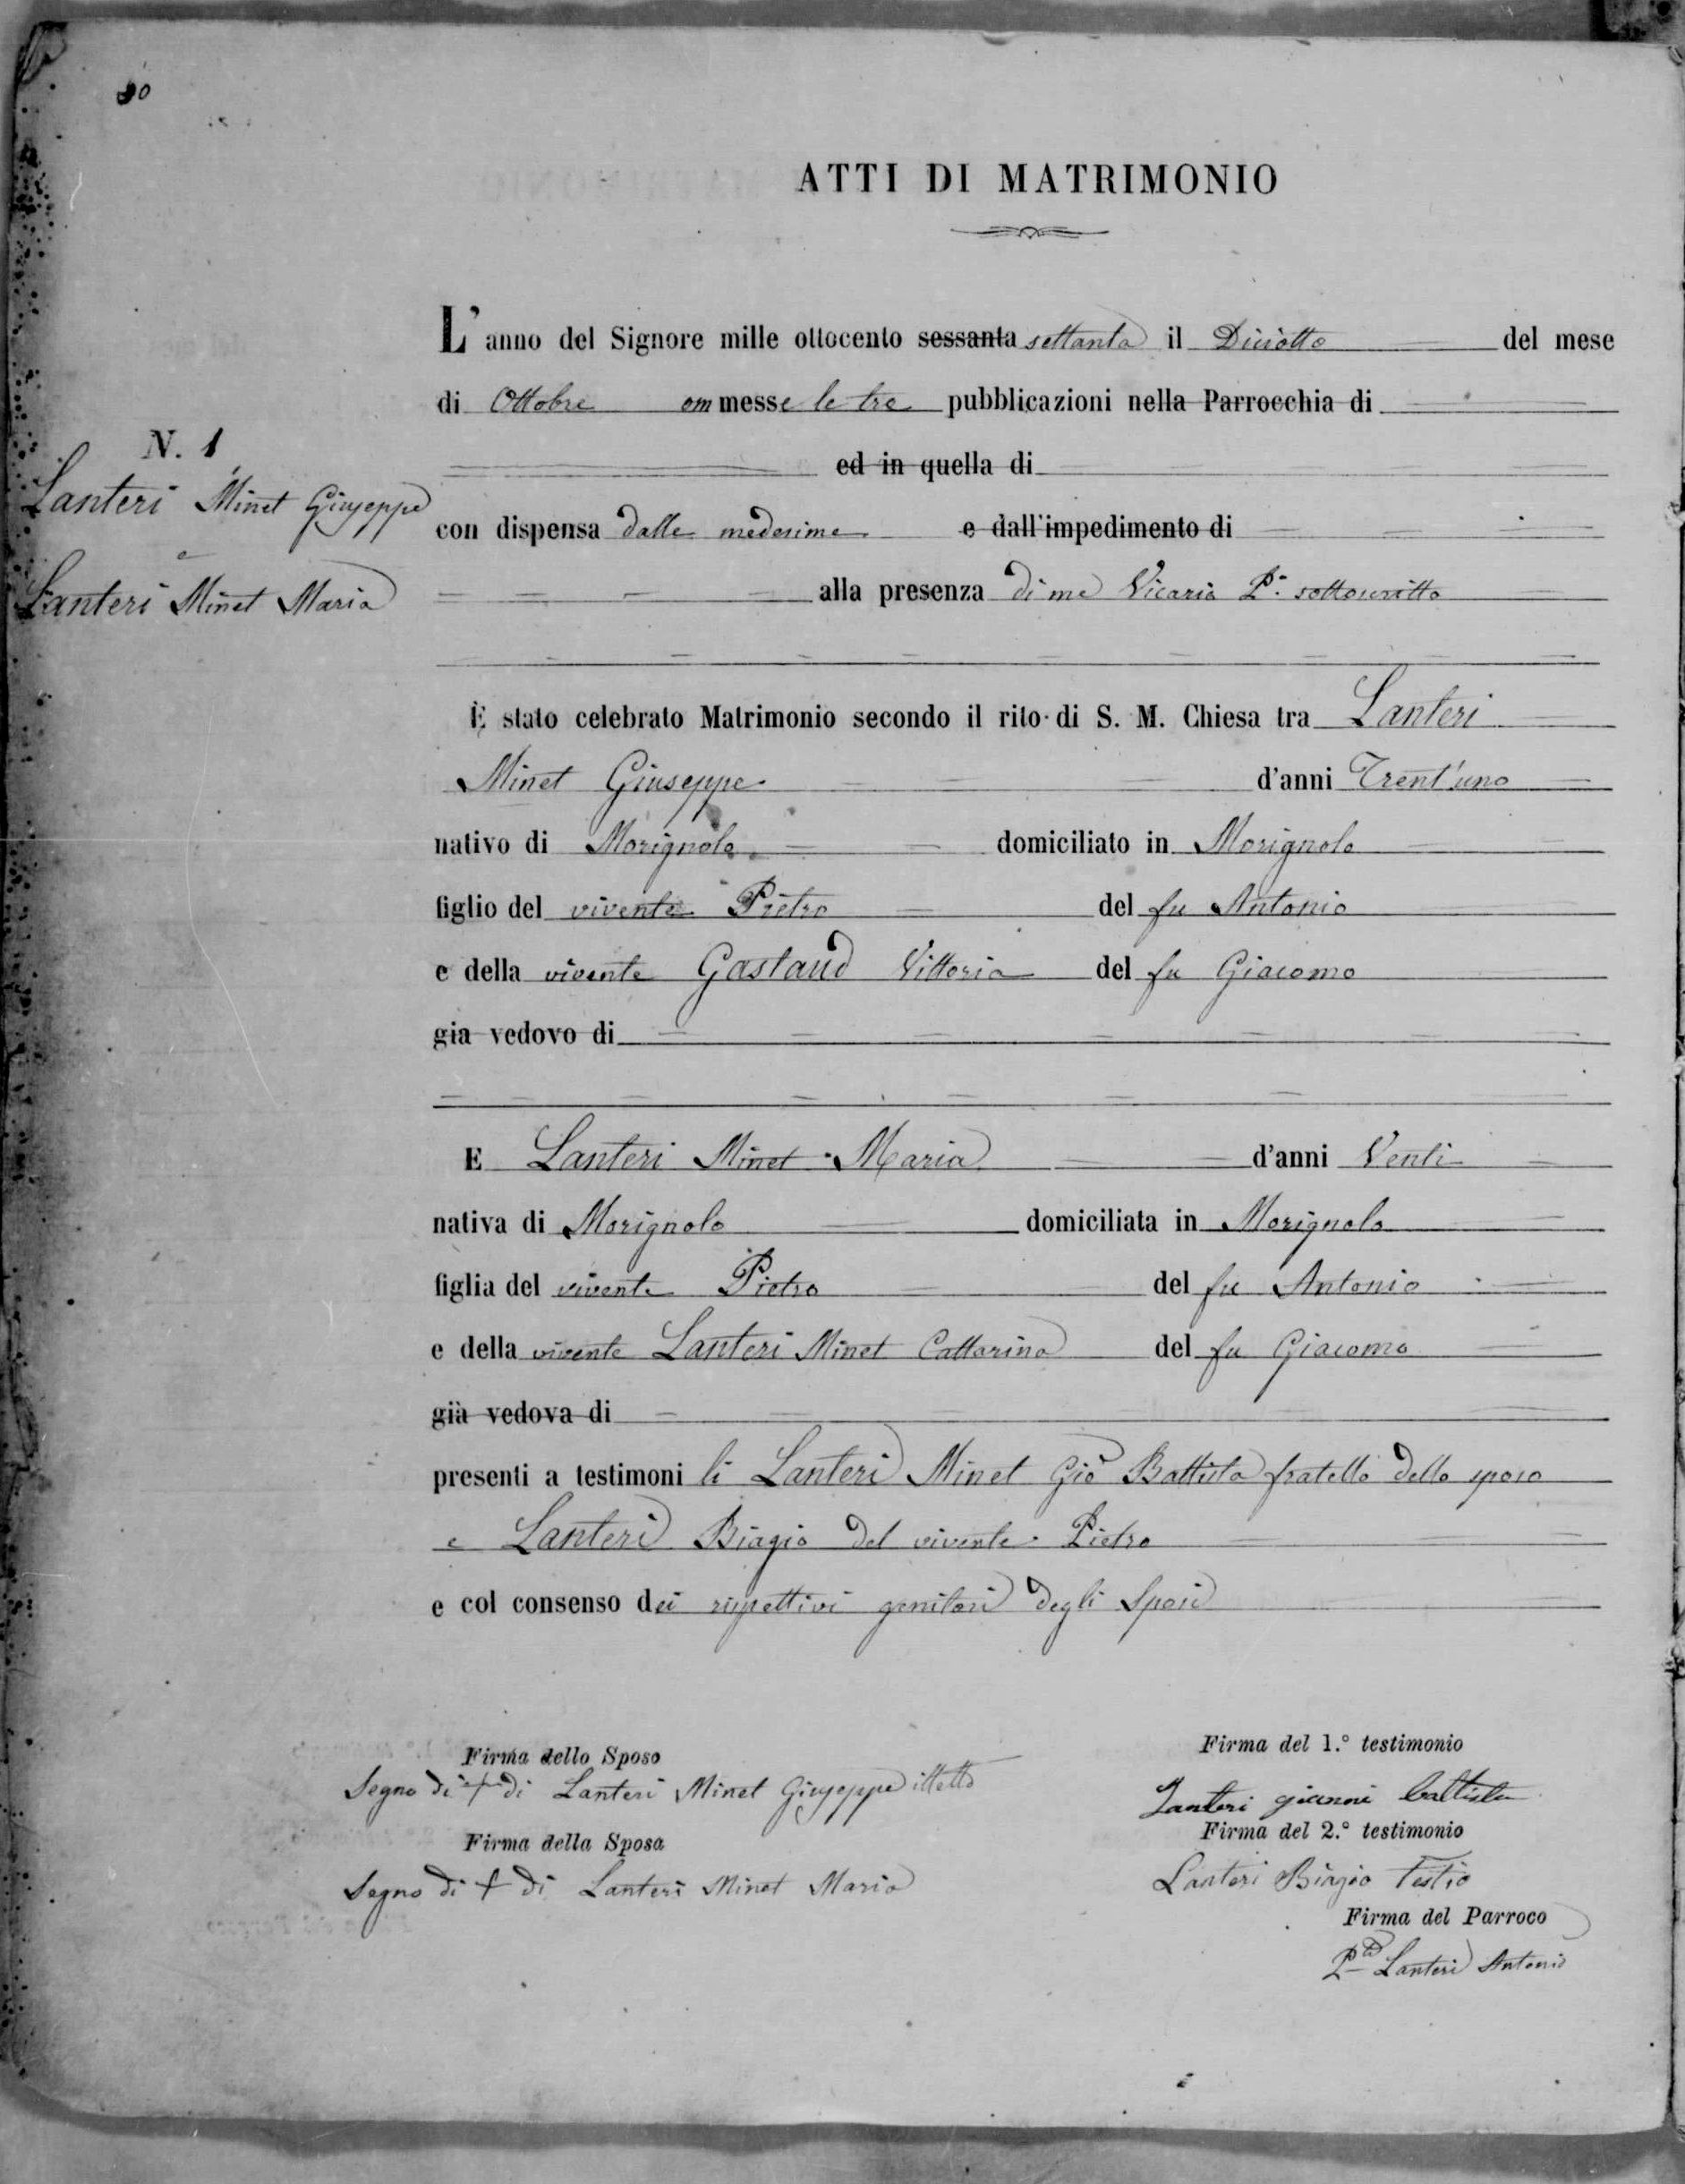 90
ATTI DI MATRIMONIO
L' anno del Signore mille ottocento sessanta settanta il Diciotto del mese
di Ottobre ommesse le tre pubblicazioni nella Parrocchia di
ed in quella di
N. 1
Lanteri Minet Giuseppe
e
Lanteri Minet Maria
con dispensa dalle medesime e dall'impedimento di
alla presenza di me Vicario P. sottoscritto
È stato celebrato Matrimonio secondo il rito di S. M. Chiesa tra Lanteri
Minet Giuseppe d'anni Trent'uno
nativo di Morignolo domiciliato in Morignolo
figlio del vivente Pietro del fu Antonio
e della vivente Gastaud Vittoria del fu Giacomo
gia vedovo di
E Lanteri Minet Maria d'anni Venti
nativa di Morignolo domiciliata in Morignolo
figlia del vivente Pietro del fu Antonio
e della vivente Lanteri Minet Cattarina del fu Giacomo
già vedova di
presenti a testimoni li Lanteri Minet Gio Battista fratello dello sposo
e Lanteri Biagio del vivente Pietro
e col consenso dei rispettivi genitori degli Sposi
Firma dello Sposo
Segno di + di Lanteri Minet Giuseppe illetto
Firma della Sposa
Segno di + di Lanteri Minet Maria
Firma del 1.° testimonio
Lanteri gianni battista
Firma del 2.° testimonio
Lanteri Biagio Testio
Firma del Parroco
Lanteri Antonio